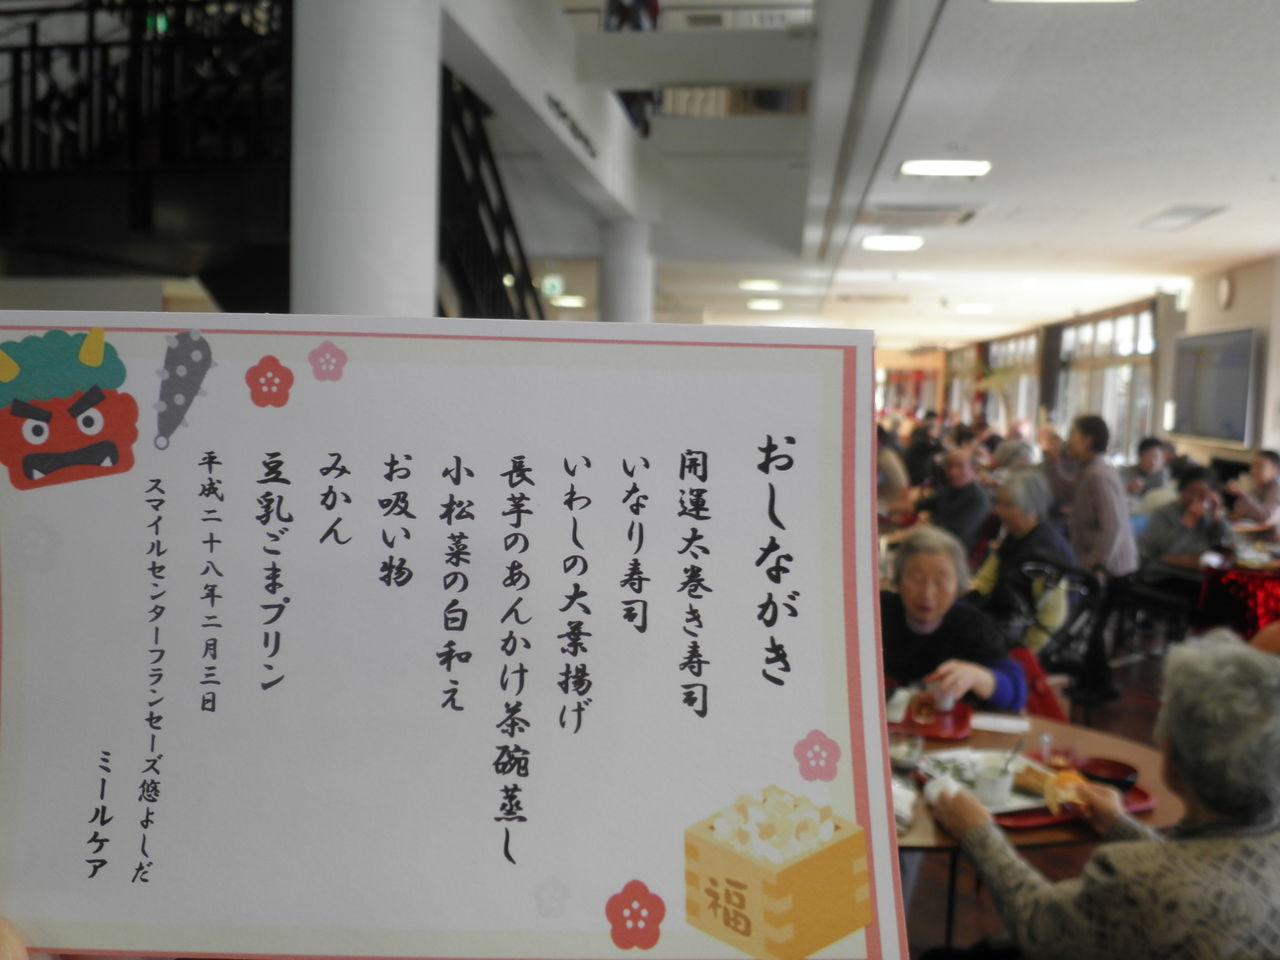 おしながき
開運太巻き寿司
いなり寿司
いわしの大葉揚げ
長芋のあんかけ茶碗蒸し
小松菜の白和え
お吸い物
みかん
豆乳ごまプリン
平成二十八年二月三日
スマイルセンターフランセーズ悠よしだ
ミールケア
福